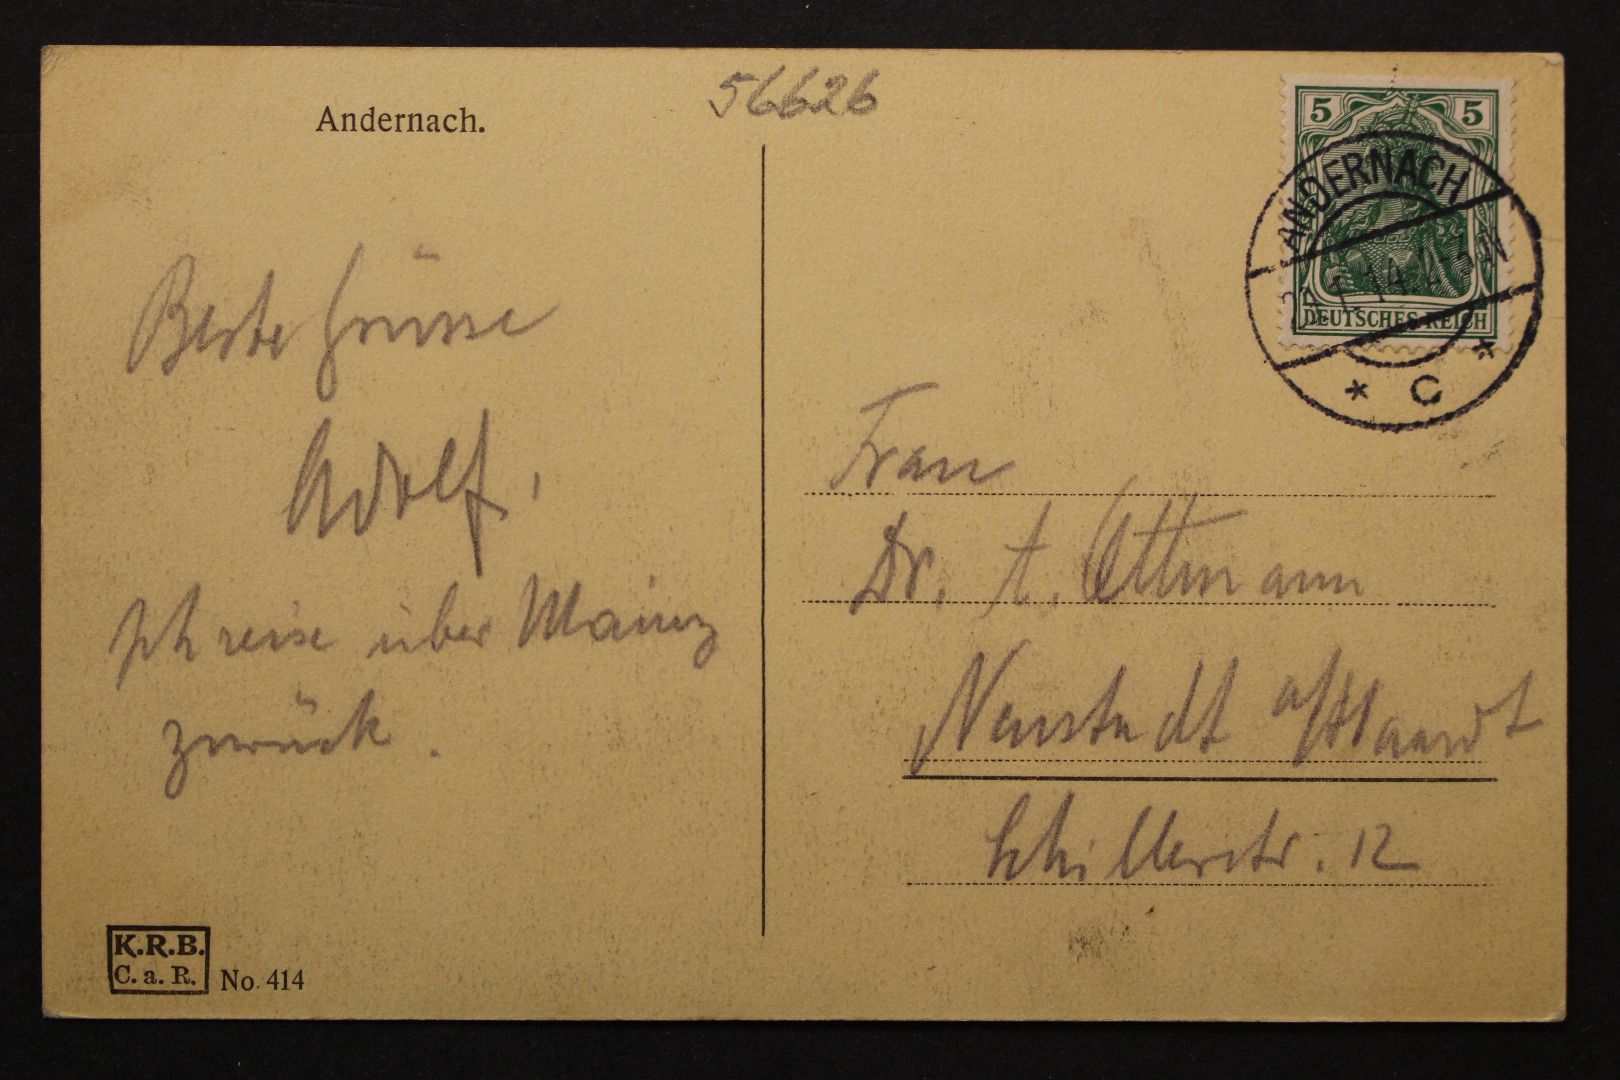 Andernach.
56626
Beste Grüsse
Adolf,
Ich reise über Mainz
zurück.
K.R.B.
C. a. R.
No. 414
5 5
DEUTSCHES REICH
ANDERNACH
14
* C *
Frau
Dr. A. Ottmann
Neustadt a/Haardt
Schillerstr. 12